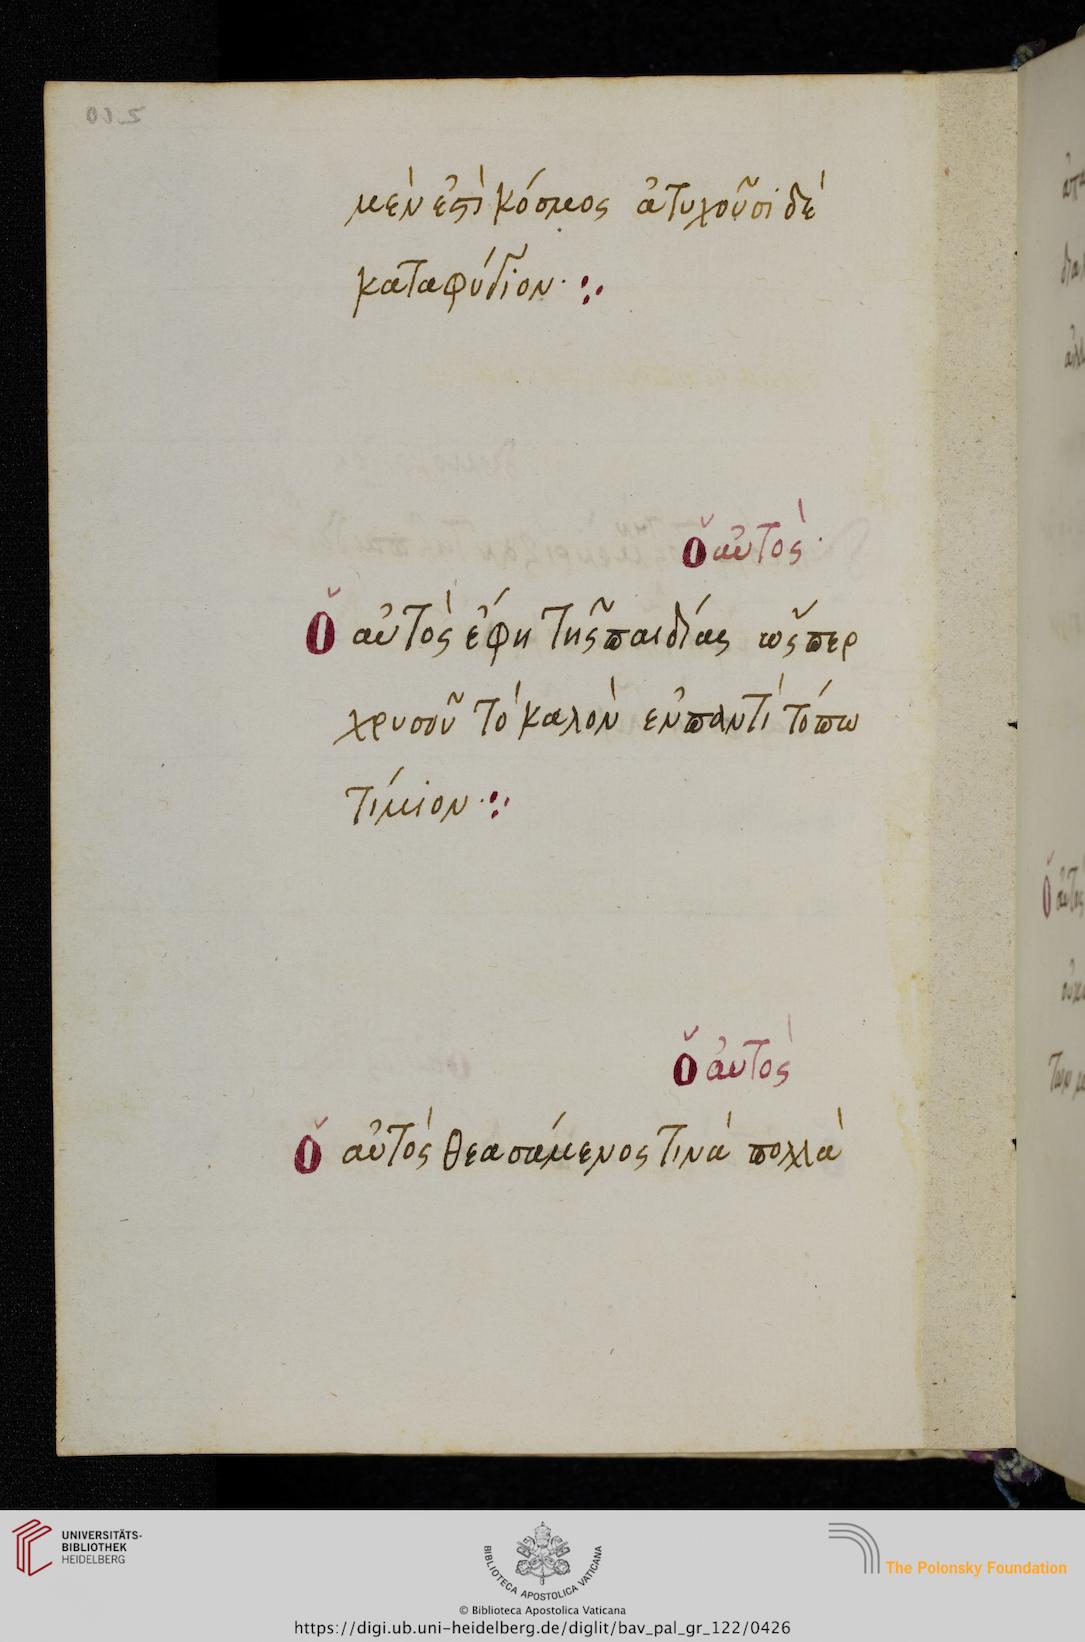 μὲν ἐστὶ κόσμος ἀτυχοῦσι δὲ
καταφύγιον· :·
ὁ αὐτὸς·
Ὁ αὐτὸς ἔφη τῆς παιδίας ὥσπερ
χρυσοῦ τὸ καλὸν ἐν παντὶ τόπω
τίμιον· :·
ὁ αὐτὸς
Ὁ αὐτὸς θεασάμενος τινὰ πολλὰ
UNIVERSITÄTS-
BIBLIOTHEK
HEIDELBERG
BIBLIOTECA APOSTOLICA VATICANA
The Polonsky Foundation
© Biblioteca Apostolica Vaticana
https://digi.ub.uni-heidelberg.de/diglit/bav_pal_gr_122/0426